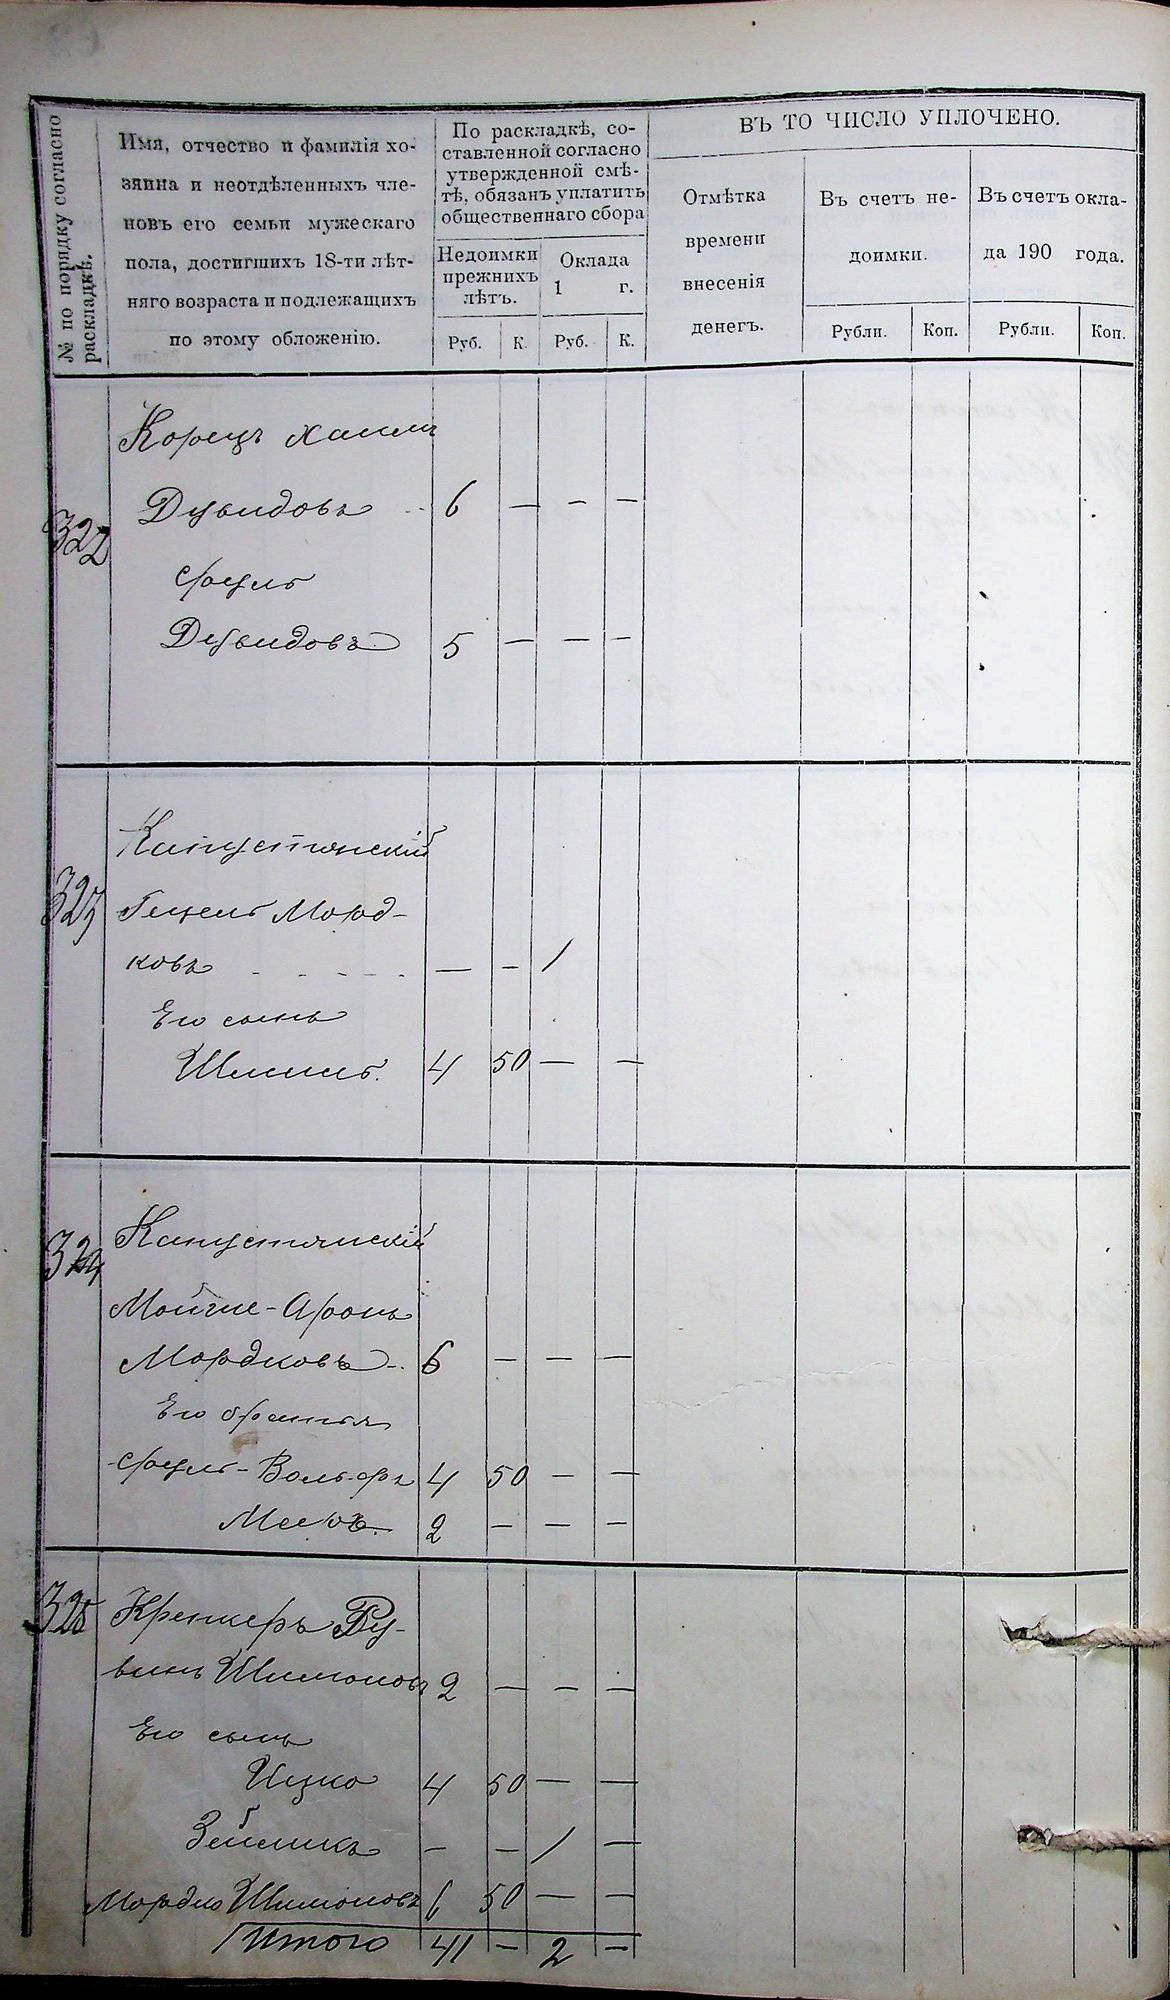 № по порядку согласно
раскладкѣ.
Имя, отчество и фамилія хо-
зяина и неотдѣленныхъ чле-
новъ его семьи мужескаго
пола, достигшихъ 18-ти лѣт-
няго возраста и подлежащихъ
по этому обложенію.
По раскладкѣ, со-
ставленной согласно
утвержденной смѣ-
тѣ, обязанъ уплатить
общественнаго сбора
Недоимки
прежнихъ
лѣтъ.
Оклада
1 г.
Руб. К. Руб. К.
ВЪ ТО ЧИСЛО УПЛОЧЕНО.
Отмѣтка
времени
внесенія
денегъ.
Въ счетъ не-
доимки.
Въ счетъ окла-
да 190 года.
Рубли. Коп. Рубли. Коп.
Корецъ Хаимъ
322 Дувидовъ 6 — — —
Сруль
Дувидовъ 5 — — —
Капустянскій
323 Гецель Морд-
ковъ - - - - - — — 1
Его сынъ
Шмиль. 4 50 — —
324 Капустянскій
Мойше-Аронъ
Мордковъ 6 — — —
Его братья
Сруль-Вольфъ 4 50 — —
Мееръ. 2 — — —
325 Кренцеръ Ру-
винъ Шимоновъ 2 — — —
Его сынъ
Ицко 4 50 — —
Зейликъ — — 1 —
Мордко Шимоновъ 6 50 — —
Итого 41 — 2 —